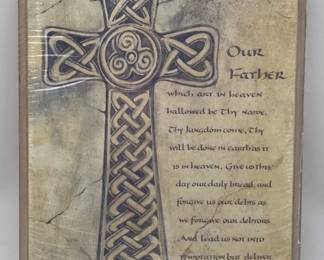 Our
Father
which art in heaven
hallowed be Thy name.
Thy kingdom come, Thy
will be done in earth as it
is in heaven. Give us this
day our daily bread, and
forgive us our debts as
we forgive our debtors.
And lead us not into
temptation but deliver